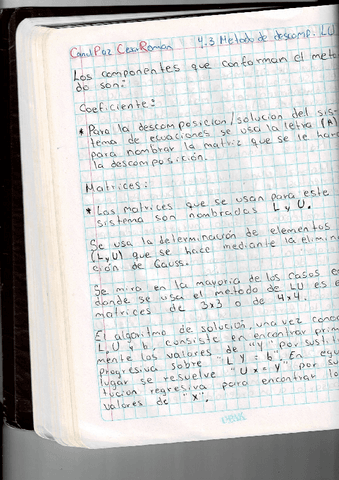 Canul Paz Cesar Roman 4.3 Metodo de descomp. LU
Los componentes que conforman el meto
do son:
Coeficiente:
* Para la descomposicion/solucion del sis-
tema de ecuaciones se usa la letra (A)
para nombrar la matriz que se le hara
la descomposición.
Matrices:
* Las matrices que se usan para este
sistema son nombradas L y U.
Se usa la determinación de elementos
(L,U) que se hace mediante la elimin
ación de Gauss.
Se mira en la mayoria de los casos en
donde se usa el metodo de LU es e
matrices de 3x3 o de 4x4.
El algoritmo de solución, una vez conoc
L, U y b, consiste en encontrar prim
mente los valores de "Y" por susti
progresiva sobre "L Y = b". En segu
lugar se resuelve "Ux = Y" por su
tucion regresiva para encontrar lo
valores de "X".